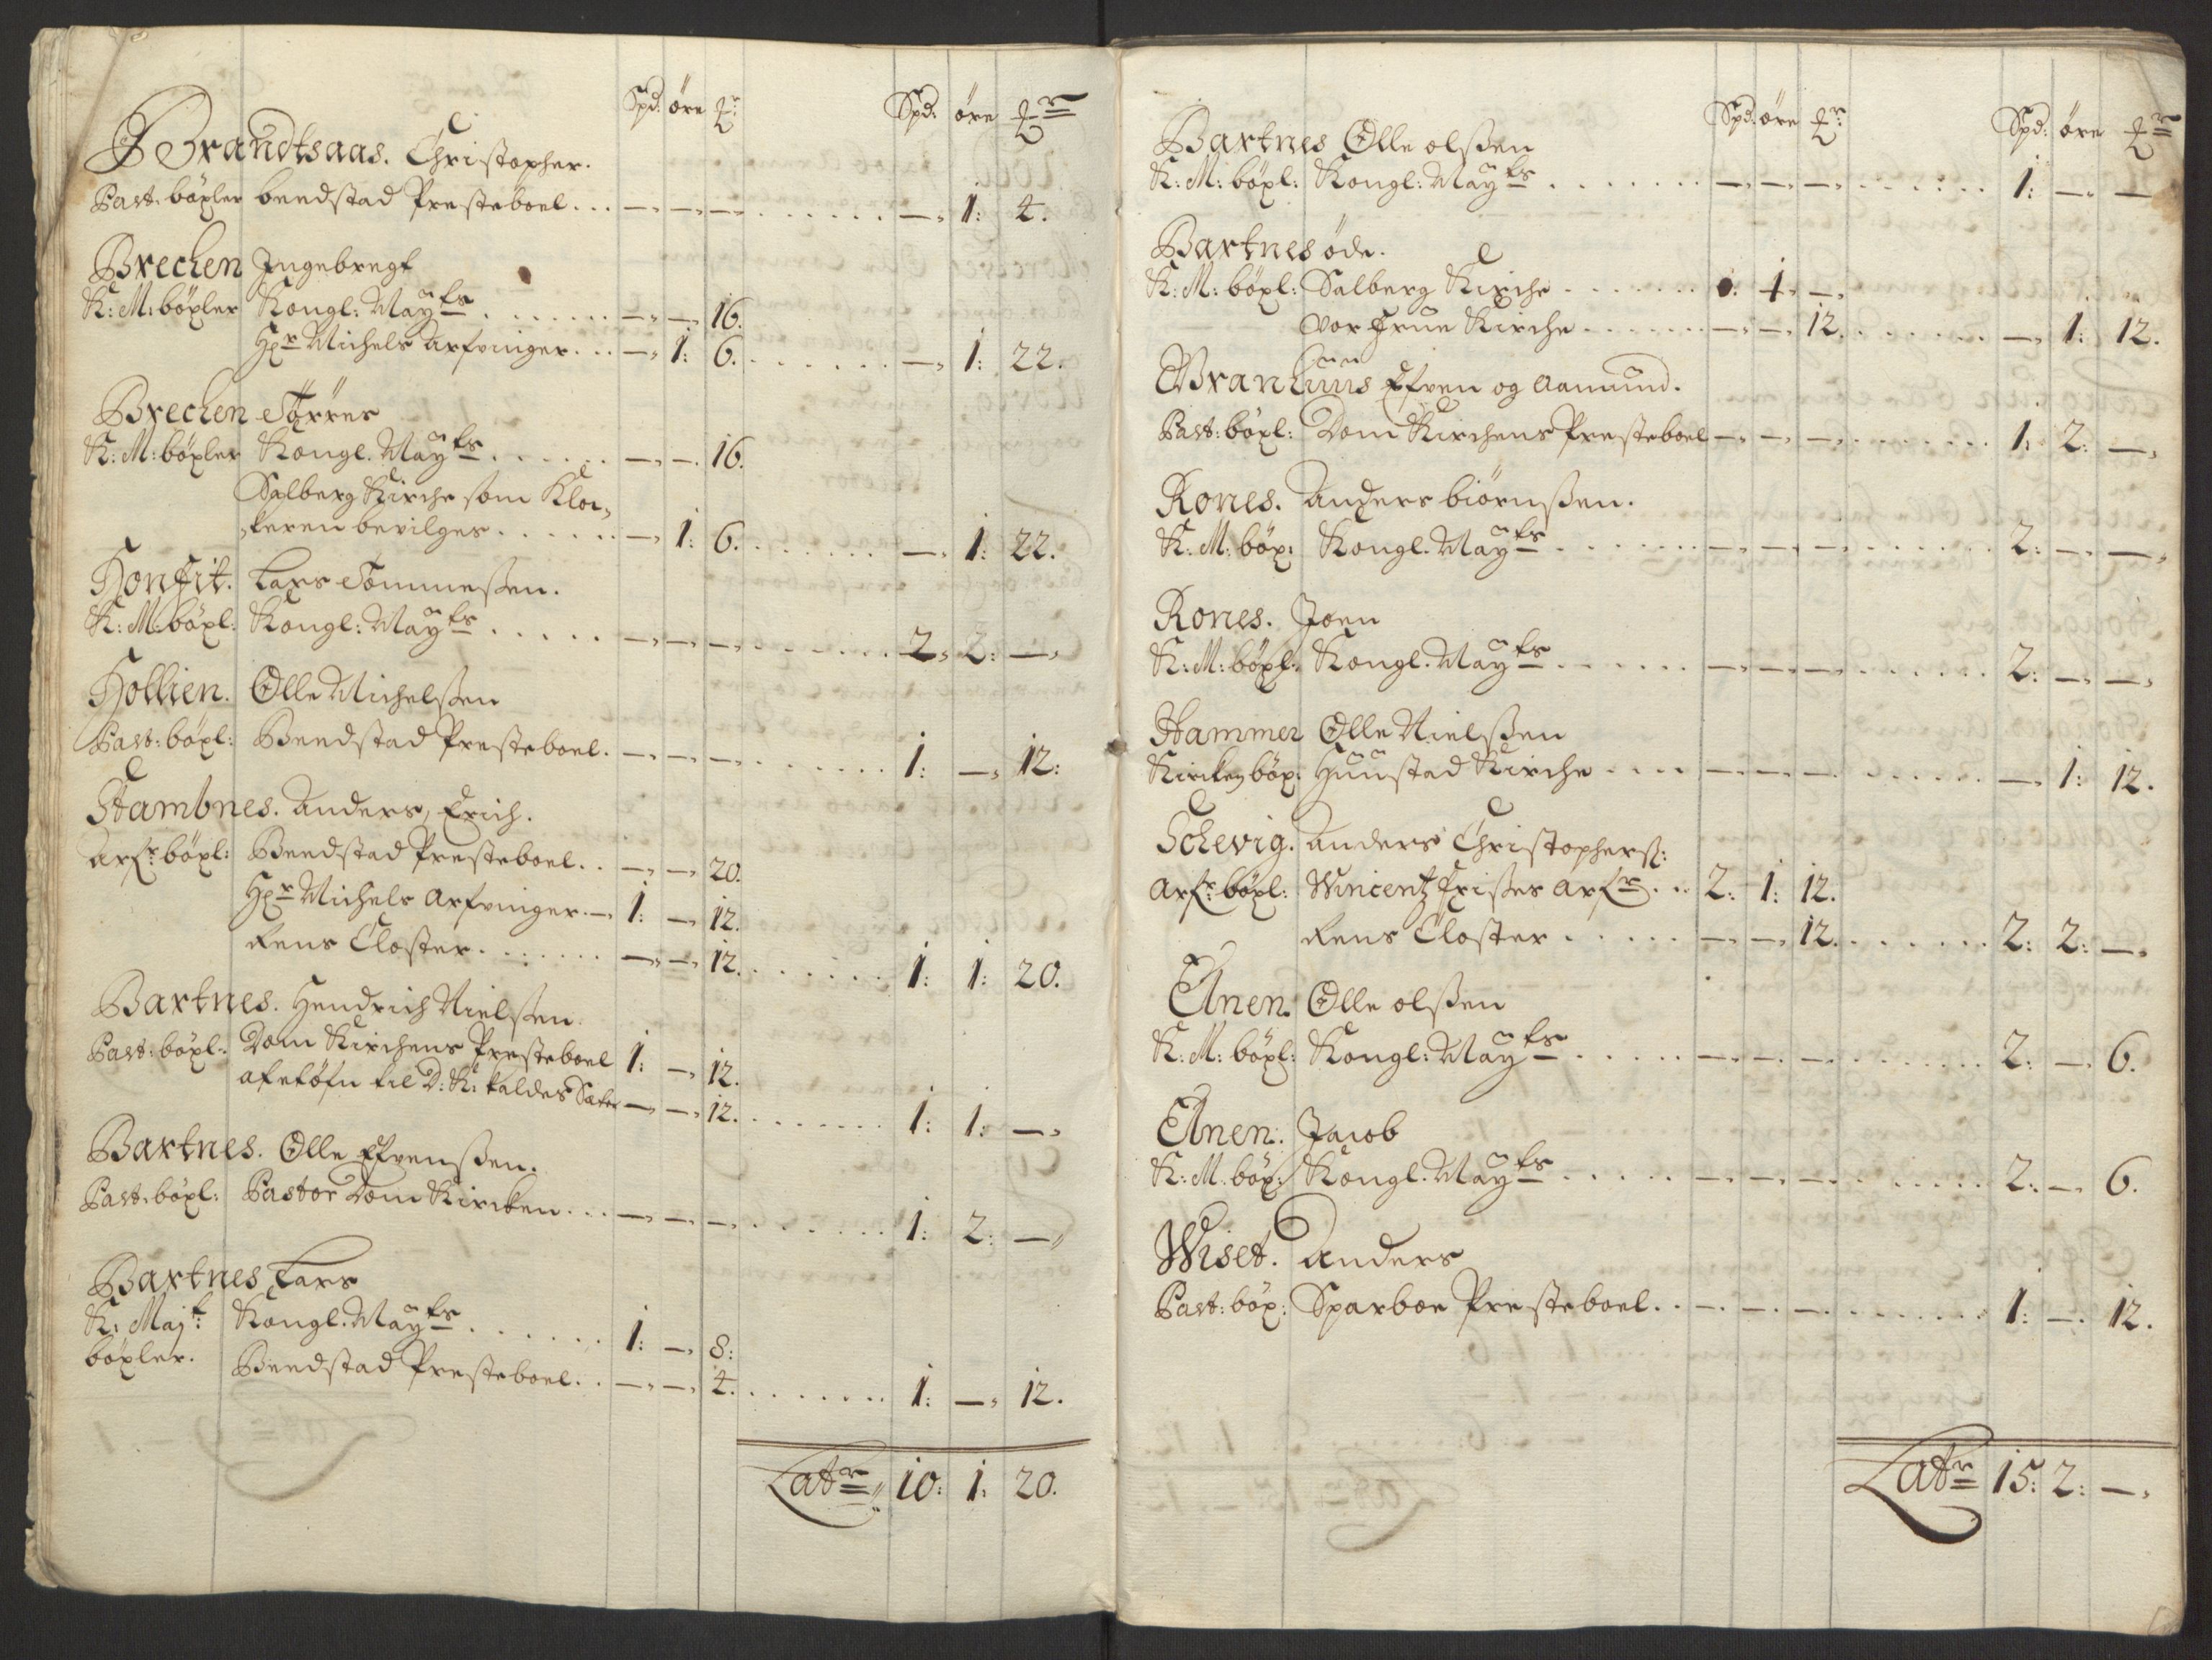 Spd: öre ℔r: Spd: öre ℔r
Brandtsaas. Christopher.
Past. böxler beedstad Presteboel... —, —, —. ....... —, 1: 4.
Brechen Ingebregt
K: M: böxler Kongl: Mayts. ....... —, —, 16.
Hr Michels Arfvinger... —, 1: 6. ....... —, 1: 22.
Brechen Törres
K: M: böxler Kongl. Mayts. ...... —, —. 16.
Salberg Kirche som Kloc,
,keren bevilges. ...... —, 1: 6. ....... —, 1: 22.
Honfit. Lars Tommeßen.
K: M: böxl: Kongl: Mayts. ..... —, —, —. ....... 2, 2: —,
Hollien. Olle Michelßen
Past: böxl: Beedstad Presteboel. —, —, —. ...... 1: —, 12:
Stambnes. Anders, Erich.
Arfr böxl: Beedstad Presteboel.. —, —, 20.
Hr Michels Arfvinger.—, 1: —, 12.
Rens Closter. ...... —, —, 12. ...... 1: 1: 20.
Bartnes. Hendrich Nielßen.
Past: böxl: Dom Kirchens Presteboel 1: —, 12.
afetöfn til D: K: kaldes Sæter —, —, 12. ....... 1: 1: —,
Bartnes. Olle Efvenßen.
Past: böxl: Pastor Dom Kircken... —, —, —. ...... 1: 2: —,
Bartnes Lars
K: Majt: Kongl. Mayts. ...... 1: —, 8:
böxler. Beedstad Presteboel.. —, —, 4. ...... 1: —, 12.
Latr 10: 1: 20.
Spd: öre ℔r: Spd: öre ℔r
Bartnes Olle olßen
K: M: böxl: Kongl: Mayts. ...... —, —, —. ...... 1: —, —
Bartnes öde.
K: M: böxl: Salberg Kirche. ...... 1, —,
Vor Frue Kirche. ..... —, —, 12. ...... —, 1: 12.
Granhuus Efven og Aamund.
Past: böxl: Dom Kirchens Presteboel —, —, —. ...... 1: 2: —,
Rones. Anders biörnßen.
K: M: böx: Kongl. Mayts. ...... —, —, —. ...... 2: —, —,
Rones. Joen
K: M: böxl: Kongl. Mayts. ...... —, —, —. ...... 2: —, —,
Hammer Olle Nielßen
Kircken böx: Huustad Kirche .... —, —, —. ..... —, 1: 12.
Schevig. Anders Christopherß:
Arfr: böxl: Wincentz Frißes Arfr. .. 2: 1: 12.
Rens Closter. .... —, —, 12. ...... 2: 2: —,
Elnen. Olle olßen
K: M: böxl: Kongl: Mayts. ..... —, —, —. ...... 2: —, 6.
Elnen: Jacob
K: M. böx: Kongl. Mayts. ..... —, —, —. ...... 2: —, 6.
Wiset. Anders
Past: böx: Sparboe Presteboel. . —, —. —. ....... 1: —. 12.
Latr 15: 2: —,